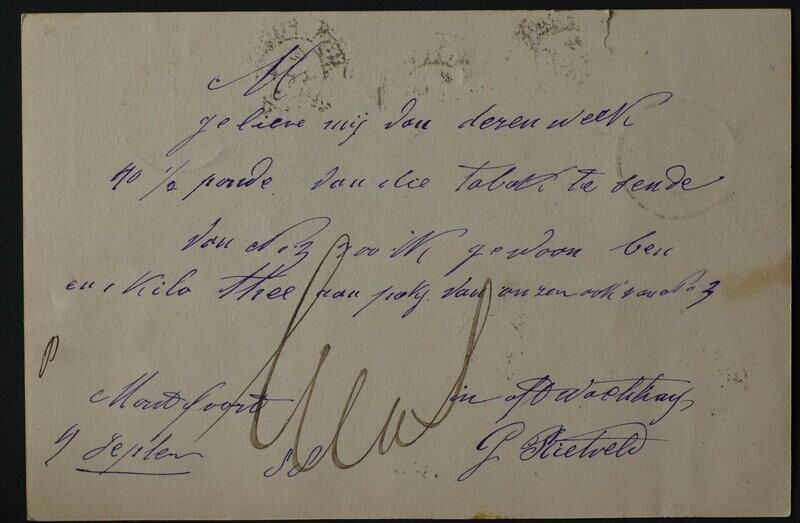 M
gelieve mij van dezen week
40 1/2 ponde van die tabak te sende
van No 3 zoo ik gewoon ben
en 1 Kilo thee aan pakj van onzen ook van No 3
Montfoort in afwachting
4 Septem 88 G Rietveld